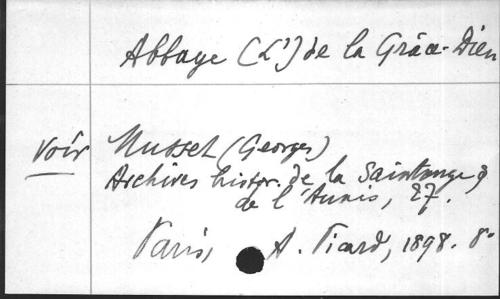 Abbaye (L') de la Grâce-Dieu
voir Musset (Georges)
Archives histor. de la Saintonge &
de l'Aunis, 27.
Paris, A. Picard, 1898. 8º